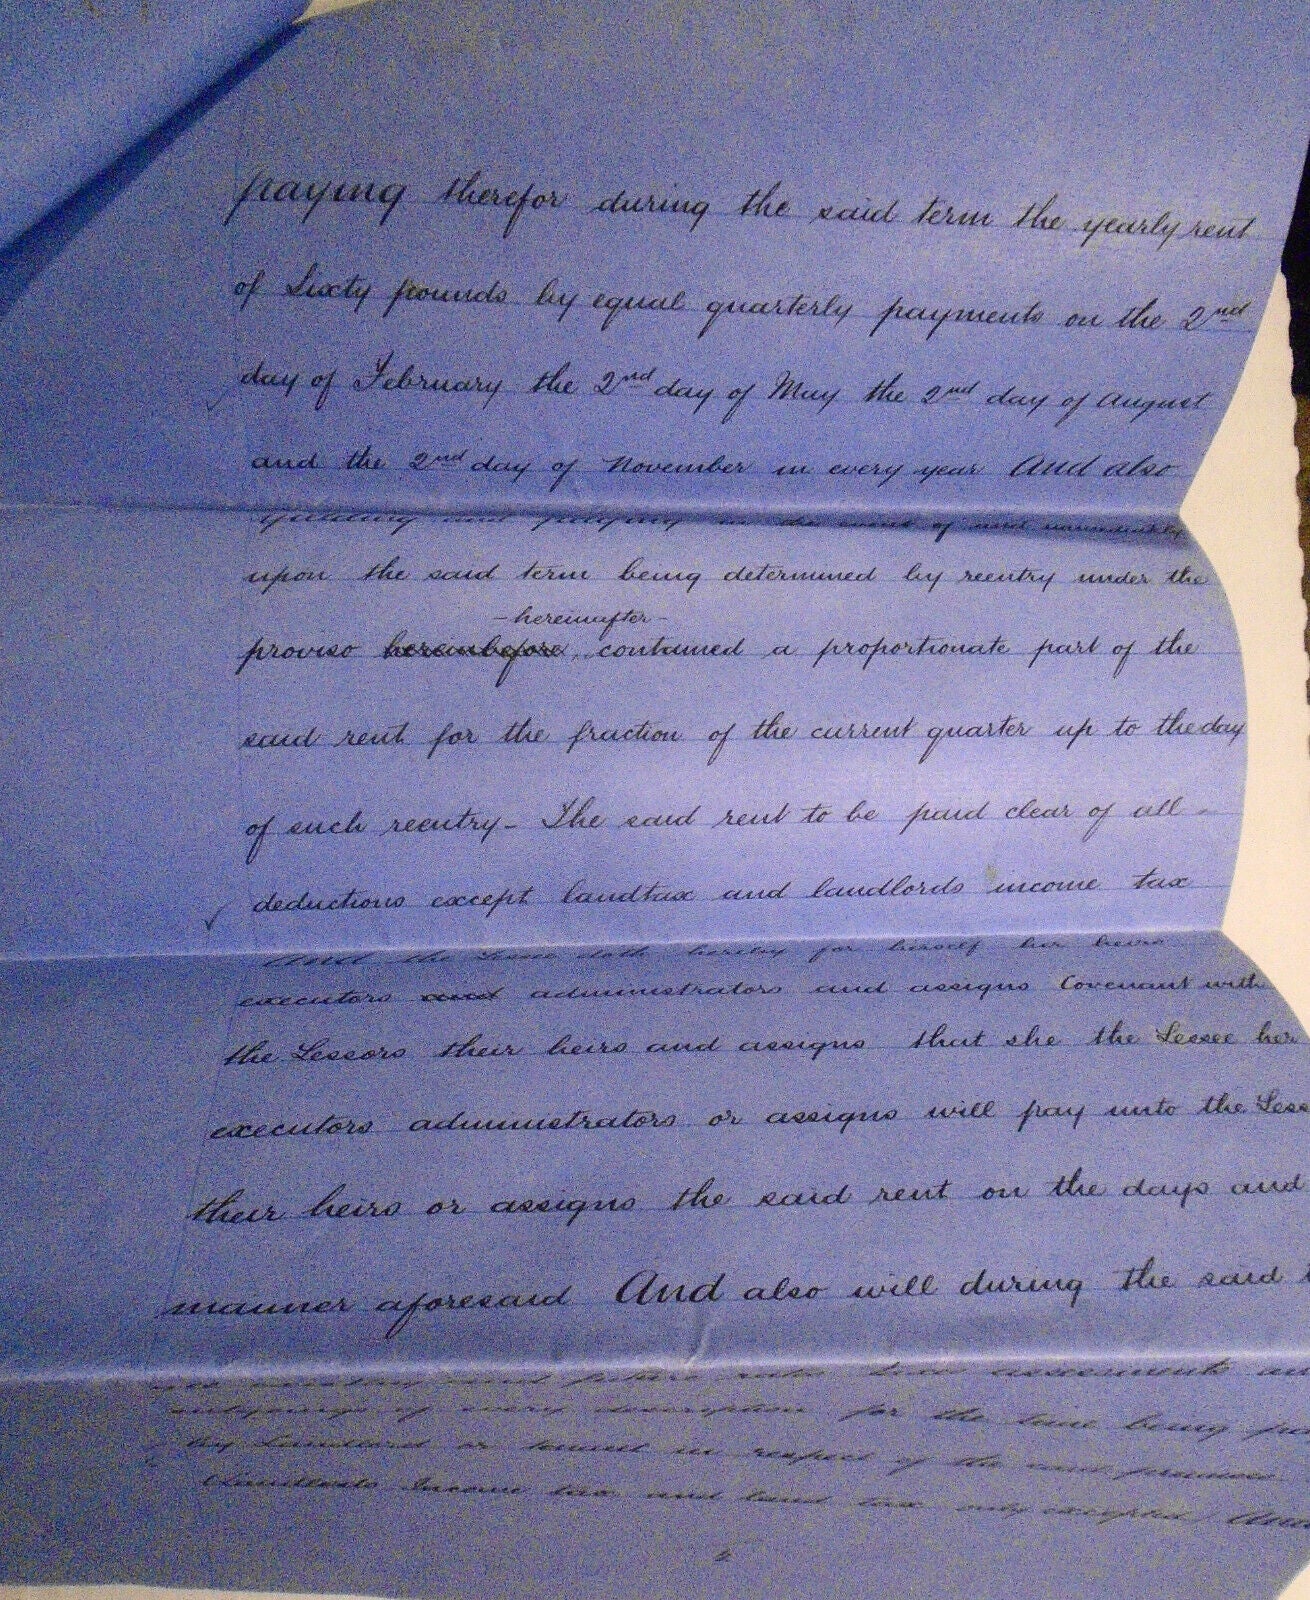 paying therefor during the said term the yearly rent
of Sixty pounds by equal quarterly payments on the 2nd
day of February the 2nd day of May the 2nd day of August
and the 2nd day of November in every year And also
yielding and paying in the event of and immediately
upon the said term being determined by reentry under the
-hereinafter-
proviso hereinbefore contained a proportionate part of the
said rent for the fraction of the current quarter up to the day
of such reentry - The said rent to be paid clear of all -
deductions except landtax and landlords income tax
And the Lessee doth hereby for herself her heirs
executors and administrators and assigns Covenant with
the Lessors their heirs and assigns that she the Lessee her
executors administrators or assigns will pay unto the Less
their heirs or assigns the said rent on the days and
manner aforesaid And also will during the said t
and future rates taxes assessments an
outgoings of every description for the time being pa
by Landlord or tenant in respect of the said premises
(Landlords Income tax and land tax only excepted) And